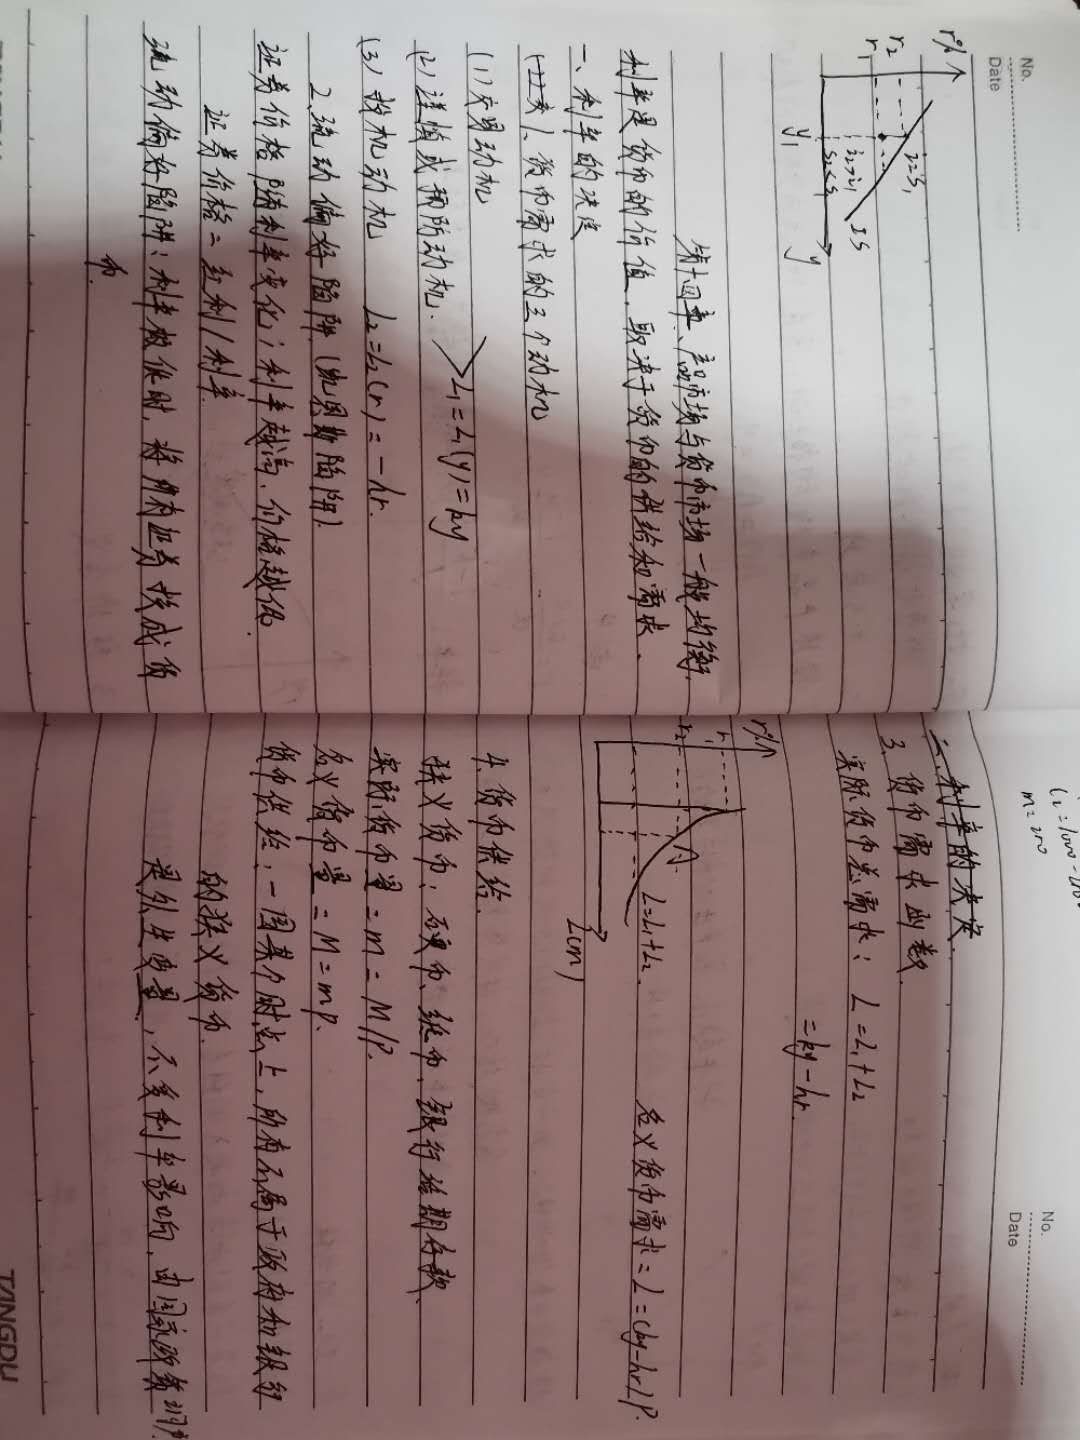 No.
Date
r%
r₂
r₁
i=s₁
IS
y₁
y
第十四章、产品市场与货币市场一般均衡.
利率是货币的价值,取决于货币的供给和需求.
一、利率的决定
1、货币需求的三个动机
(1)交易动机
(2)谨慎或预防动机. L₁=L₁(y)=ky
(3)投机动机 L₂=L₂(r)=-hr.
2.流动偏好陷阱(凯恩斯陷阱)
证券价格随利率变化;利率越高,价格越低.
证券价格=红利/利率.
流动偏好陷阱:利率极低时,将所有证券换成货
币.
No.
Date
二、利率的决定
3、货币需求函数.
实际货币总需求: L=L₁+L₂
=ky-hr.
r%
r₁
r₂
L=L₁+L₂.
L(m)
名义货币需求=L=(ky-hr)P.
4.货币供给.
狭义货币、硬币、纸币、银行活期存款.
实际货币量=m=M/P.
名义货币量=M=mP.
货币供给,一国某个时点上,所有不属于政府和银行
的狭义货币.
是外生变量,不受利率影响,由国家政策调节
TANGDU